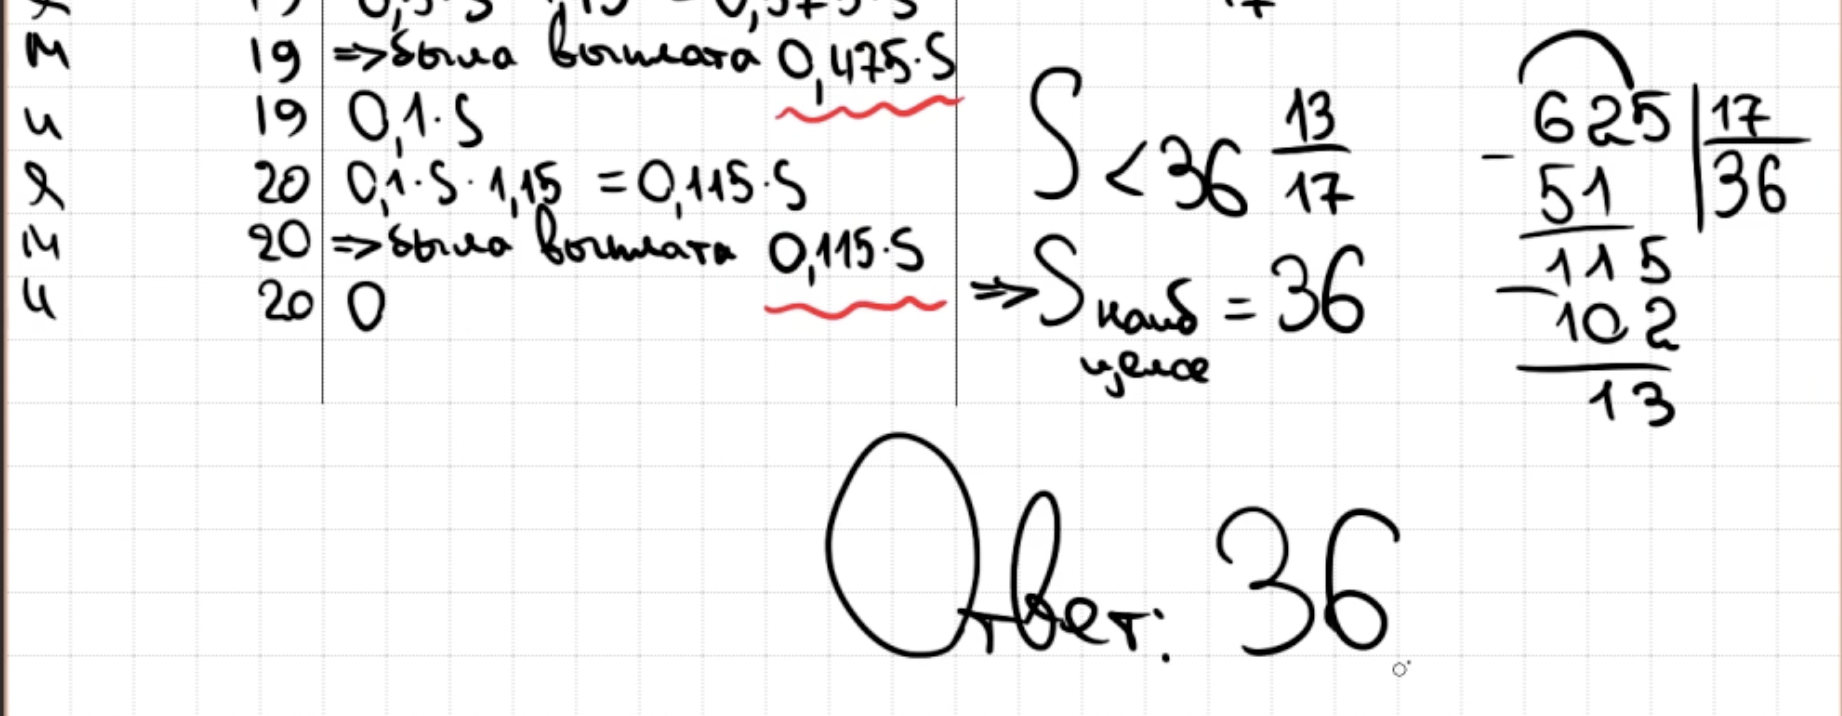 я 19 0,5·S·1,15 = 0,575·S
м 19 =>была выплата 0,475·S
и 19 0,1·S
я 20 0,1·S·1,15 = 0,115·S
м 20 =>была выплата 0,115·S
и 20 0
17
S < 36 13/17
=> S наиб = 36
целое
625 | 17
- 51 | 36
115
- 102
13
Ответ: 36